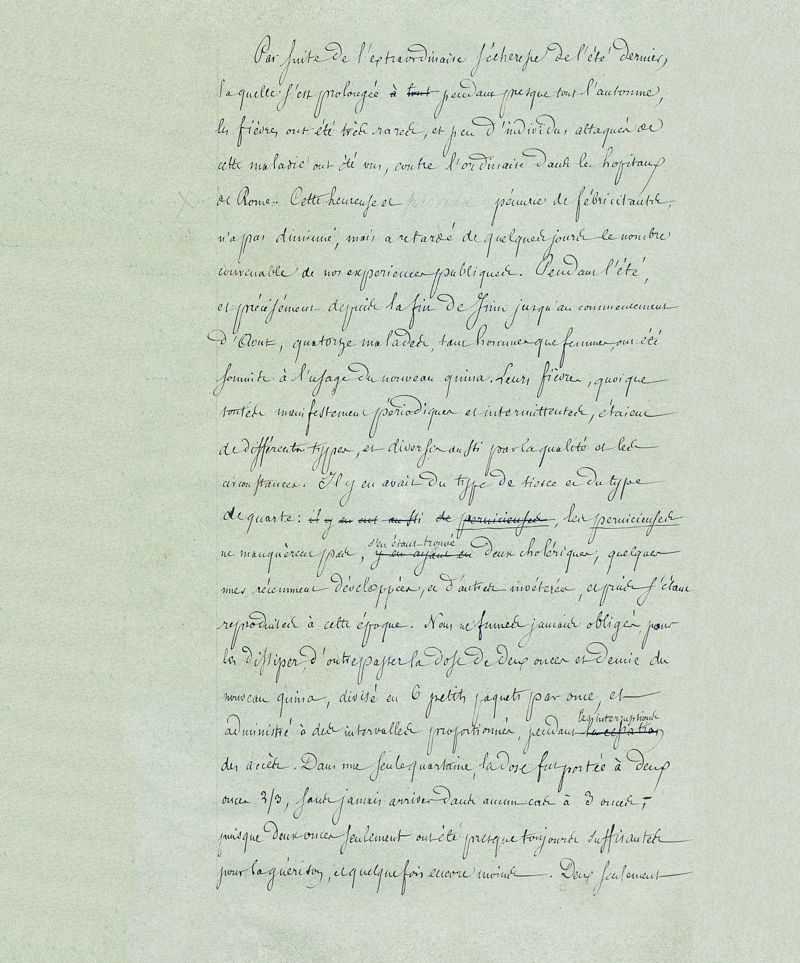 Par suite de l'extraordinaire sécheresse de l'été dernier,
laquelle s'est prolongée à tout pendant presque tout l'automne,
les fièvres ont été très rares, et peu d'individus attaqués de
cette maladie ont été vus, contre l'ordinaire dans les hopitaux
de Rome. Cette heureuse et pénurie de fébricitants,
n'a pas diminué, mais a retardé de quelques jours le nombre
convenable de nos experiences publiques. Pendant l'été,
et précisément depuis la fin de Juin jusqu'au commencement
d'Aout, quatorze malades, tant hommes que femmes, ont été
soumis à l'usage du nouveau quina. Leurs fièvres, quoique
toutes manifestement périodiques et intermittentes, étaient
de différents types, et diverses aussi par la qualité et les
circonstances. Il y en avait du type de tierce et du type
de quarte: il y en eut aussi de pernicieuses, les pernicieuses
s'en étant trouvé
ne manquèrent pas, y en ayant eu deux cholériques, quelques
unes récemment développées, et d'autres invétérées, et puis s'étant
reproduites à cette époque. Nous ne fumes jamais obligés, pour
les dissiper, d'outrepasser la dose de deux onces et demie du
nouveau quina, divisé en 6 petits paquets par once, et
les interruptions
administré à des intervalles proportionnés, pendant la cessation
des accès. Dans une seule quartaine, la dose fut portée à deux
onces 2/3, sans jamais arriver dans aucun cas à 3 onces,
puisque deux onces seulement ont été presque toujours suffisantes
pour la guérison, et quelque fois encore moins. Deux seulement